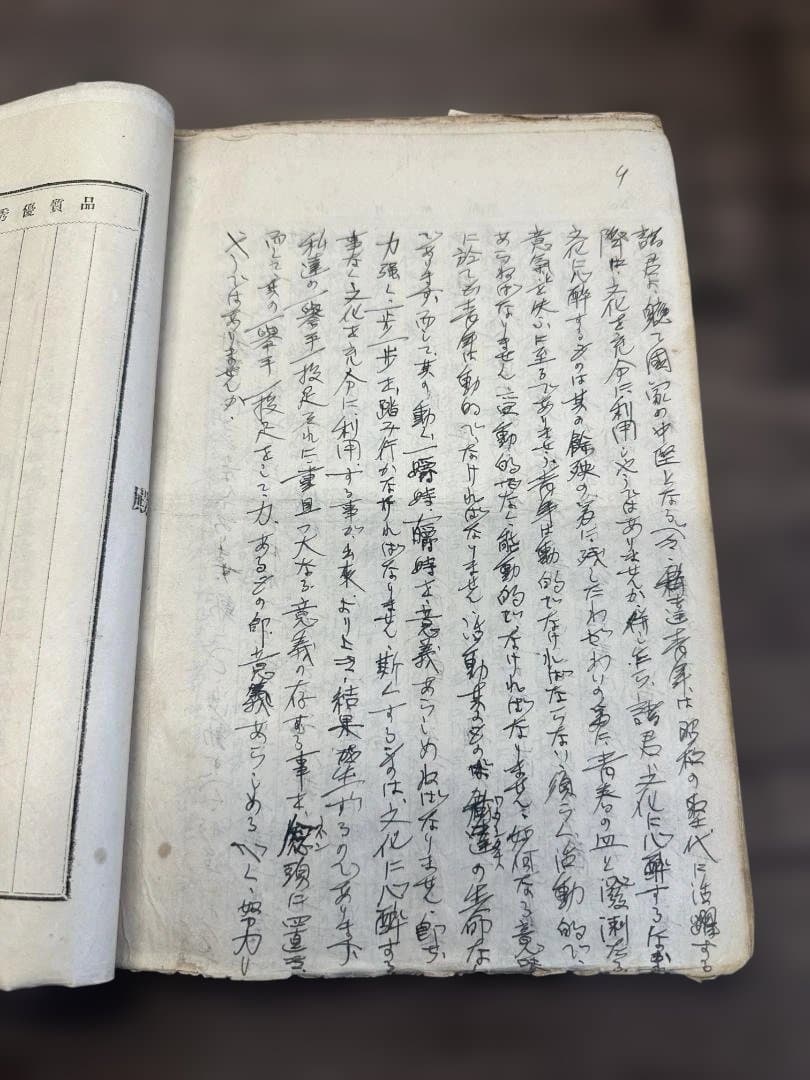 諸君よ、軈て國家の中堅となるべき、私達青年は昭和の聖代に活躍する
際は、文化を充分に利用しやうではありませんか、併し乍ら、諸君、文化に心酔するなかれ
文化に心酔するものは其の餘殃の為に、残したわざわいの為に、青春の血と溌溂たる
意氣を失ふに至るでありませう、青年は動的でなければならない、須らく活動的で
あらねばなりません、受動的でなく、能動的でなければなりません、如何なる意味
に於ても青年は動的でなければなりません、活動其のものが私達の生命な
であります、而して、其の動く一瞬時、一瞬時を意義あらしめねばなりません、即ち
力強く一歩一歩を踏み行かなければなりません、斯くするものは、文化に心酔する
事なく文化を充分に利用する事が出来、より良き結果を生ずるのであります
私達の一擧手一投足それに重且つ大なる意義の存する事を念頭に置き
ネン
而して其の一擧手一投足をして力あるもの即、意義あらしめるべく、努力し
やうではありませんか、
品質優秀